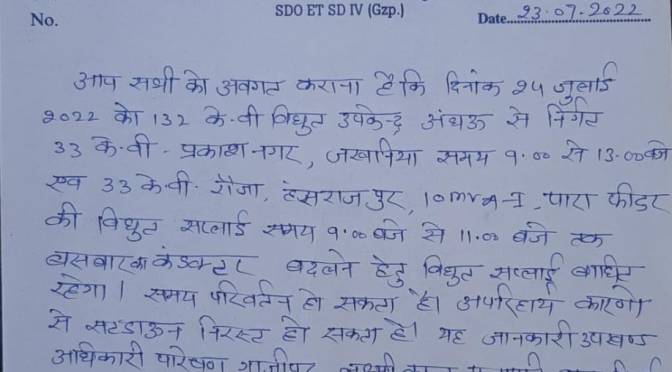 SDO ET SD IV (Gzp.)
No. Date 23-07-2022
आप सभी को अवगत कराना है कि दिनांक 24 जुलाई
2022 को 132 के.वी विधुत उपकेन्द्र अंधऊ से निर्गत
33 के.वी - प्रकाश नगर, जखनिया समय 9.00 से 13.00 बजे
एवं 33 के.वी. रौजा, हंसराजपुर, 10mva-I, पारा फीडर
की विधुत सप्लाई समय 9.00 बजे से 11.00 बजे तक
बसबार का कंडक्टर बदलने हेतु विधुत सप्लाई बाधित
रहेगा। समय परिवर्तन हो सकता है। अपरिहार्य कारणो
से सटडाऊन निरस्त हो सकता है। यह जानकारी उपखण्ड
अधिकारी पारेषण गाजीपुर